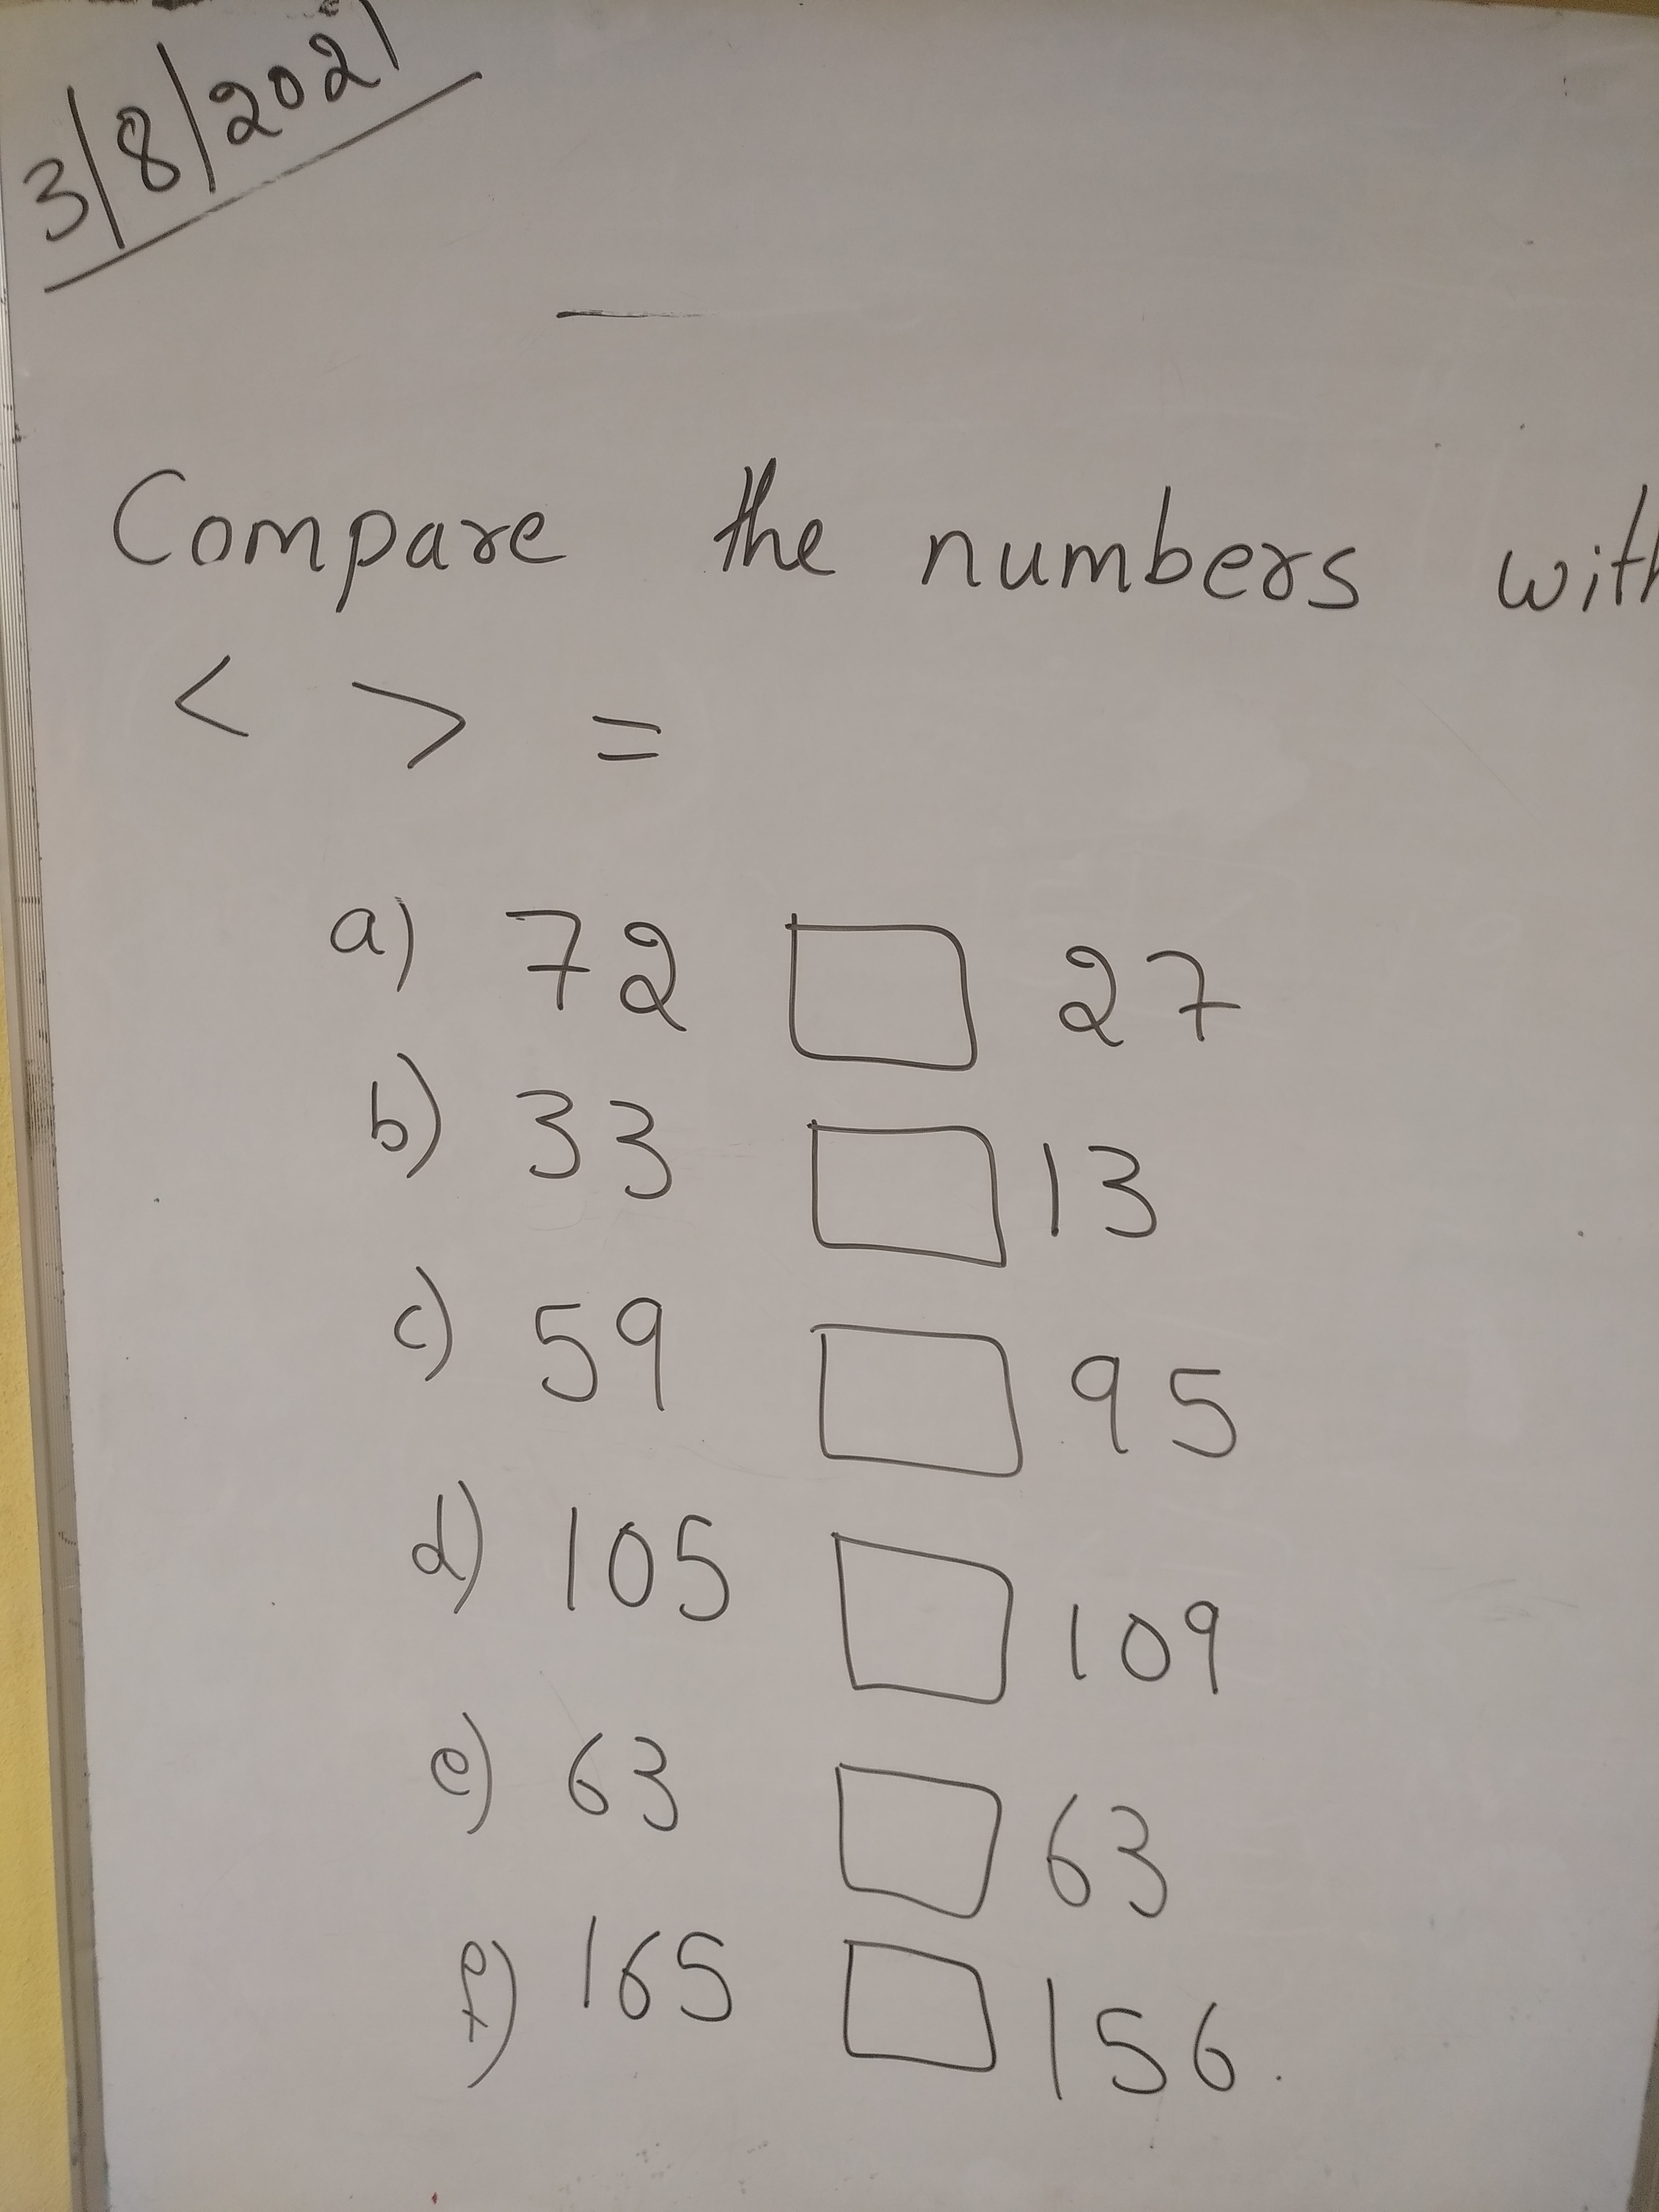 3/8/2021
Compare the numbers with
< > =
a) 72 □ 27
b) 33 □ 13
c) 59 □ 95
d) 105 □ 109
e) 63 □ 63
f) 165 □ 156.